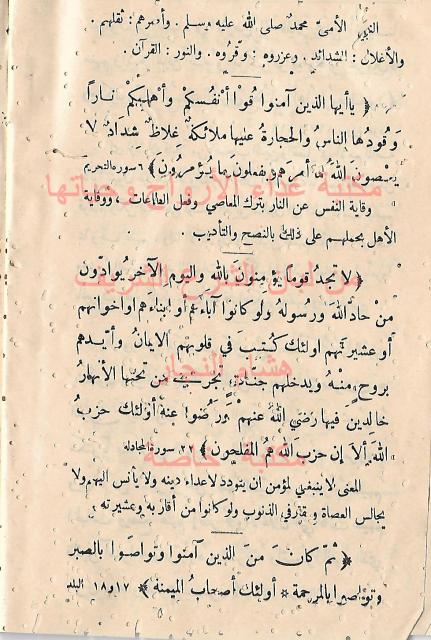 النبي الأميّ محمد صلى الله عليه وسلم . وأصرهم : ثقلهم .
والأغلال : الشدائد . وعزروه : وقروه . والنور : القرآن .
﴿ يا أيها الذين آمنوا قوا أنفسكم وأهليكم ناراً
وقودها الناس والحجارة عليها ملائكة غلاظ شداد لا
يعصون الله ما أمرهم ويفعلون ما يؤمرون ﴾ ٦ سورة التحريم
مكتبة غذاء الأرواح وحياتها
وقاية النفس عن النار بترك المعاصي وفعل الطاعات ، ووقاية
الأهل بحملهم على ذلك بالنصح والتأديب .
﴿ لا تجد قوماً يؤمنون بالله واليوم الآخر يوادّون
من أهل الشرع الشريف
من حادّ الله ورسوله ولو كانوا آباءهم او ابناءهم او اخوانهم
أو عشيرتهم اولئك كتب في قلوبهم الايمان وأيدهم
هشام النجار
بروح منه ويدخلهم جنات تجري من تحتها الأنهار
خالدين فيها رضي الله عنهم ورضوا عنه أولئك حزب
الله ألا إن حزب الله هم المفلحون ﴾ ٢٢ سورة المجادلة
مكتبة خاصة
المعنى لا ينبغي لمؤمن ان يتودد لاعداء دينه ولا يأنس اليهم ولا
يجالس العصاة ومقترفي الذنوب ولو كانوا من أقاربه وعشيرته .
﴿ ثم كان من الذين آمنوا وتواصوا بالصبر
وتواصوا بالمرحمة * أولئك أصحاب الميمنة ﴾ ١٧ و ١٨ البلد